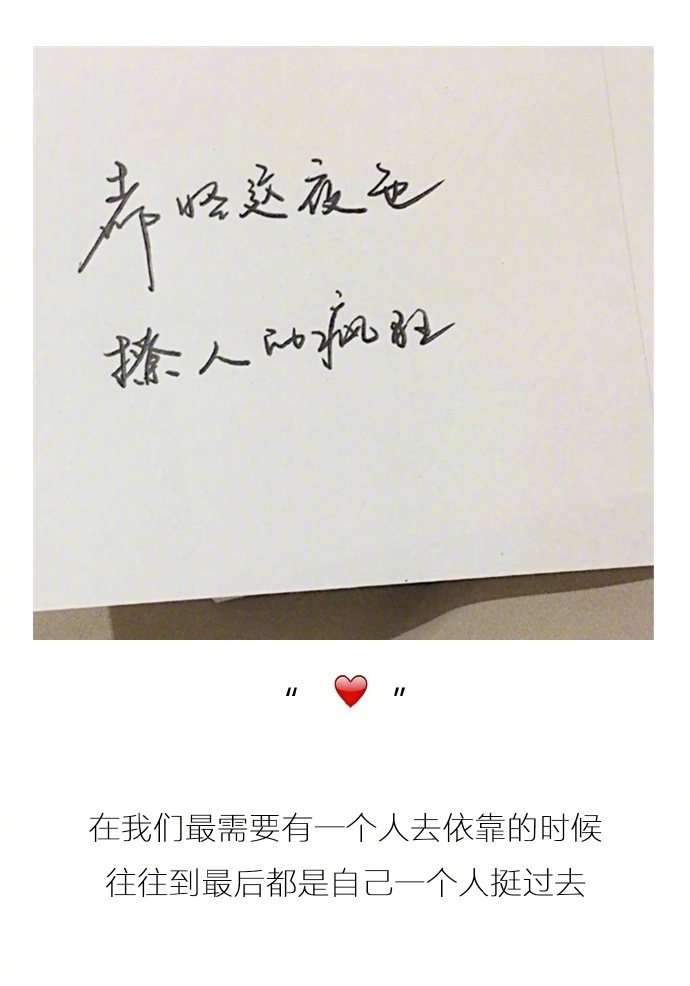 都怪这夜色
撩人的疯狂
“ ❤️ ”
在我们最需要有一个人去依靠的时候
往往到最后都是自己一个人挺过去